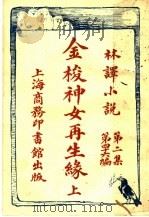 林譯小說
第二集
編
金梭神女再生緣 上
上海商務印書館出版